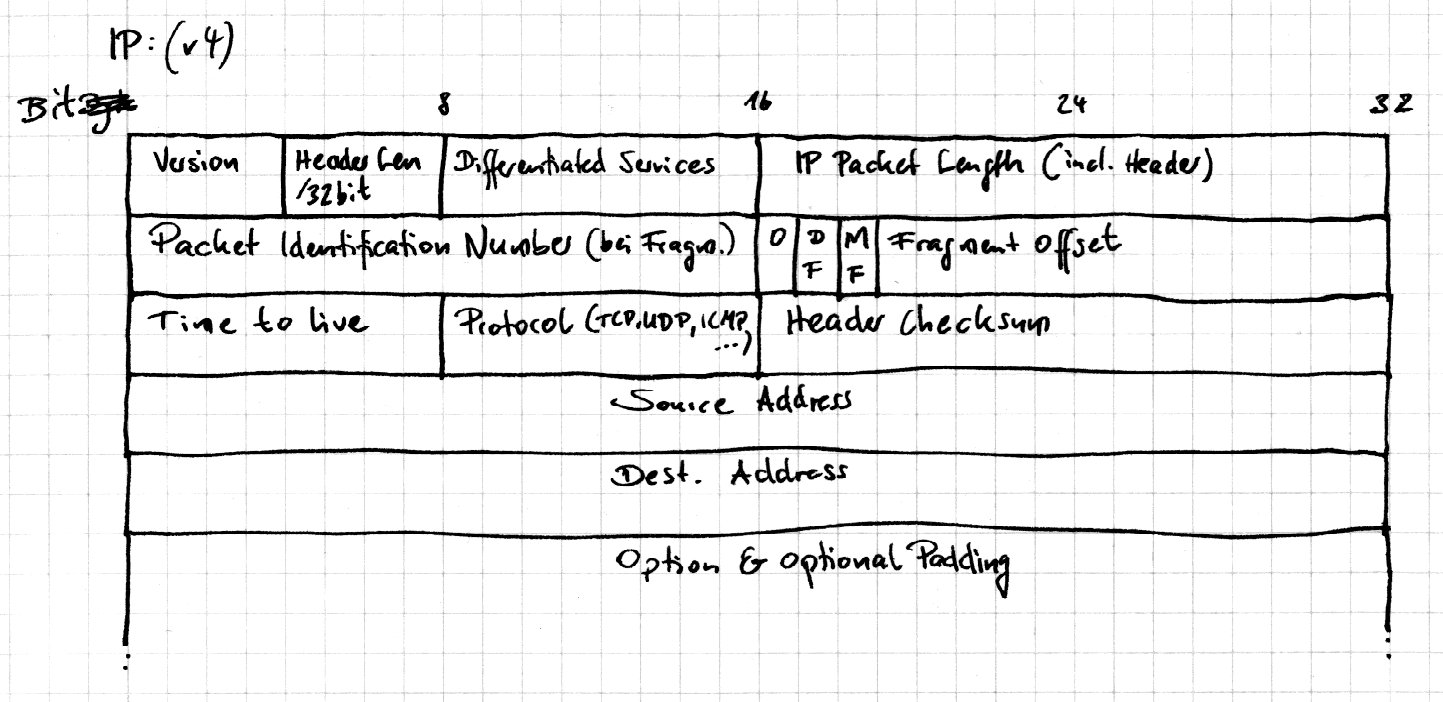 IP: (v4)
Bit 8 16 24 32
Version Header Len Differentiated Services IP Packet Length (incl. Header)
/32bit
Packet Identification Number (bei Fragm.) 0 D M Fragment Offset
F F
Time to live Protocol (TCP, UDP, ICMP, Header Checksum
...)
Source Address
Dest. Address
Option & optional Padding